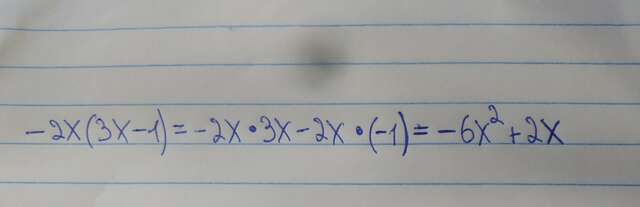 -2x(3x-1)=-2x•3x-2x•(-1)=-6x²+2x